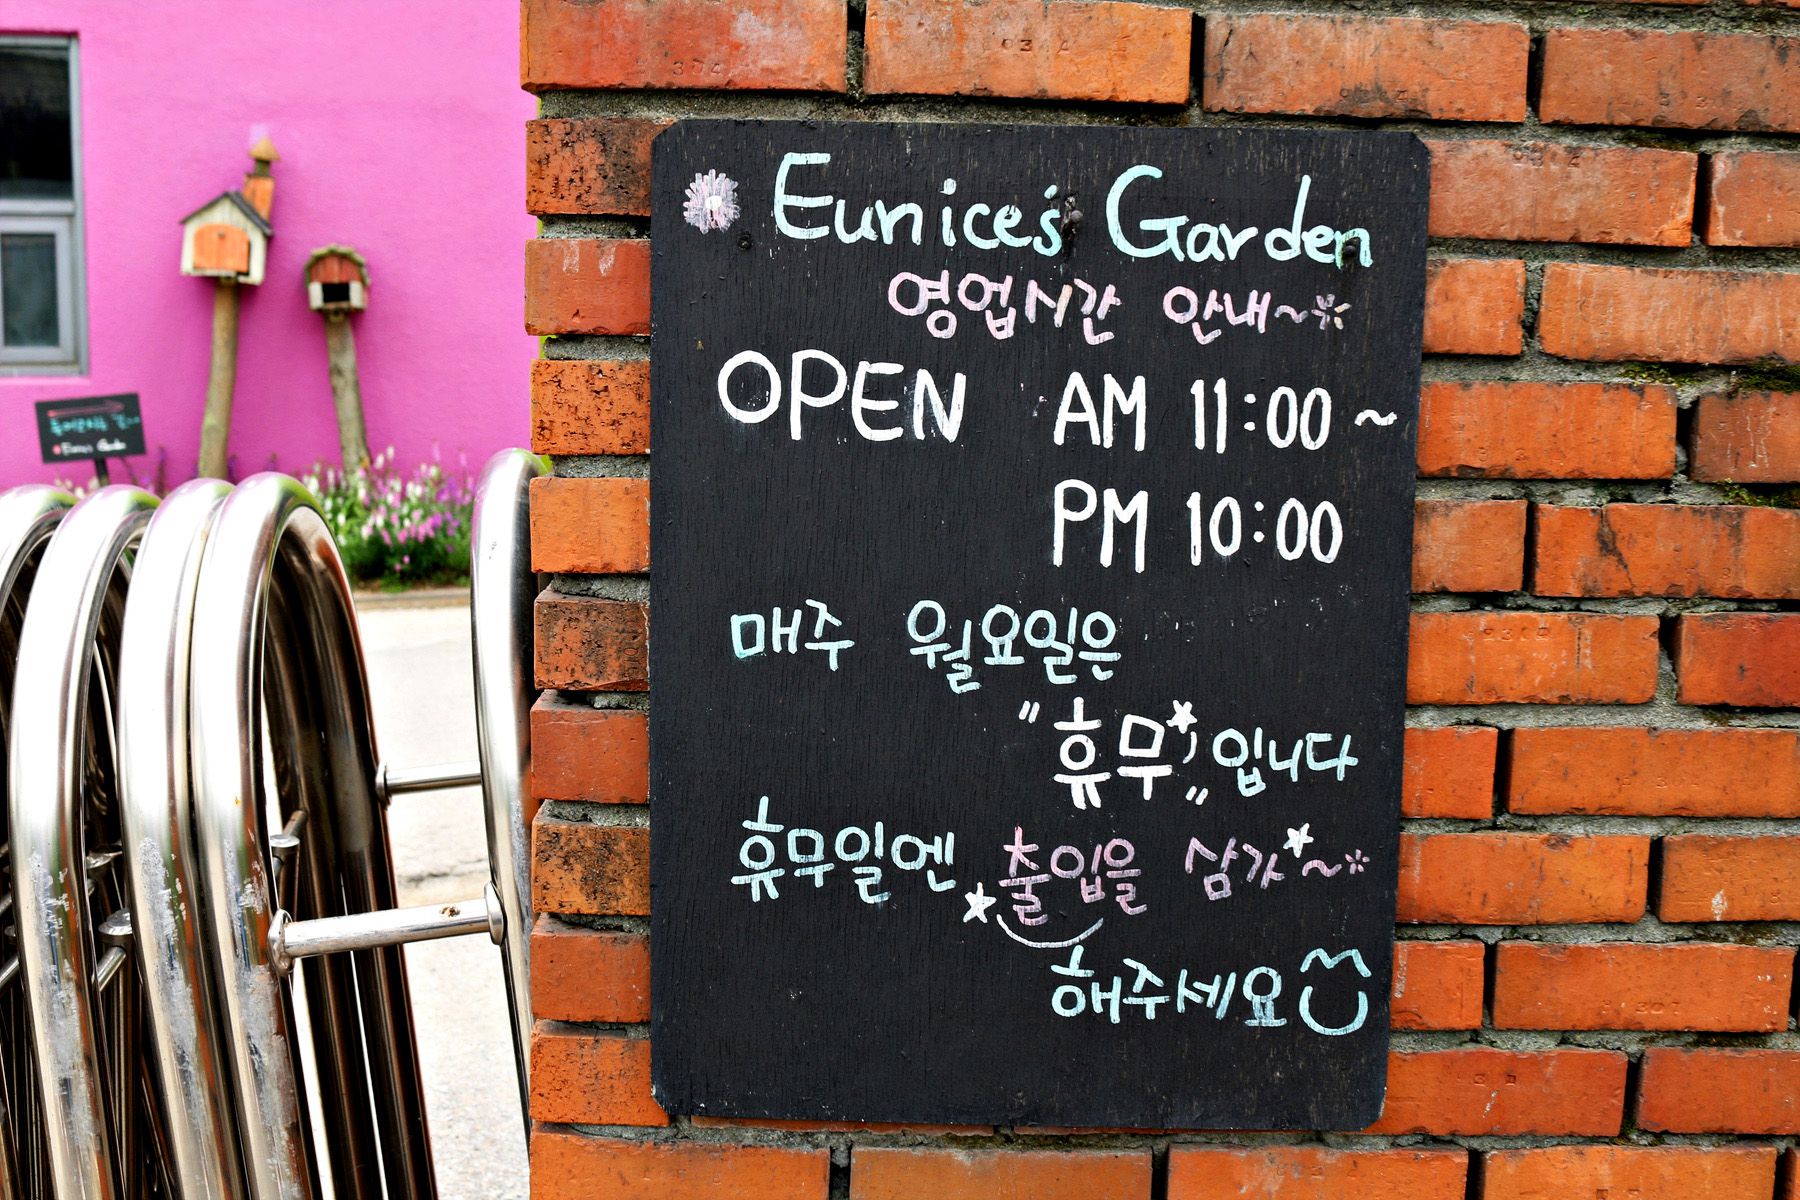 Eunice's Garden
영업시간 안내~
OPEN AM 11:00 ~
PM 10:00
매주 월요일은
"휴무" 입니다
휴무일엔 출입을 삼가~
해주세요
Eunice's Garden